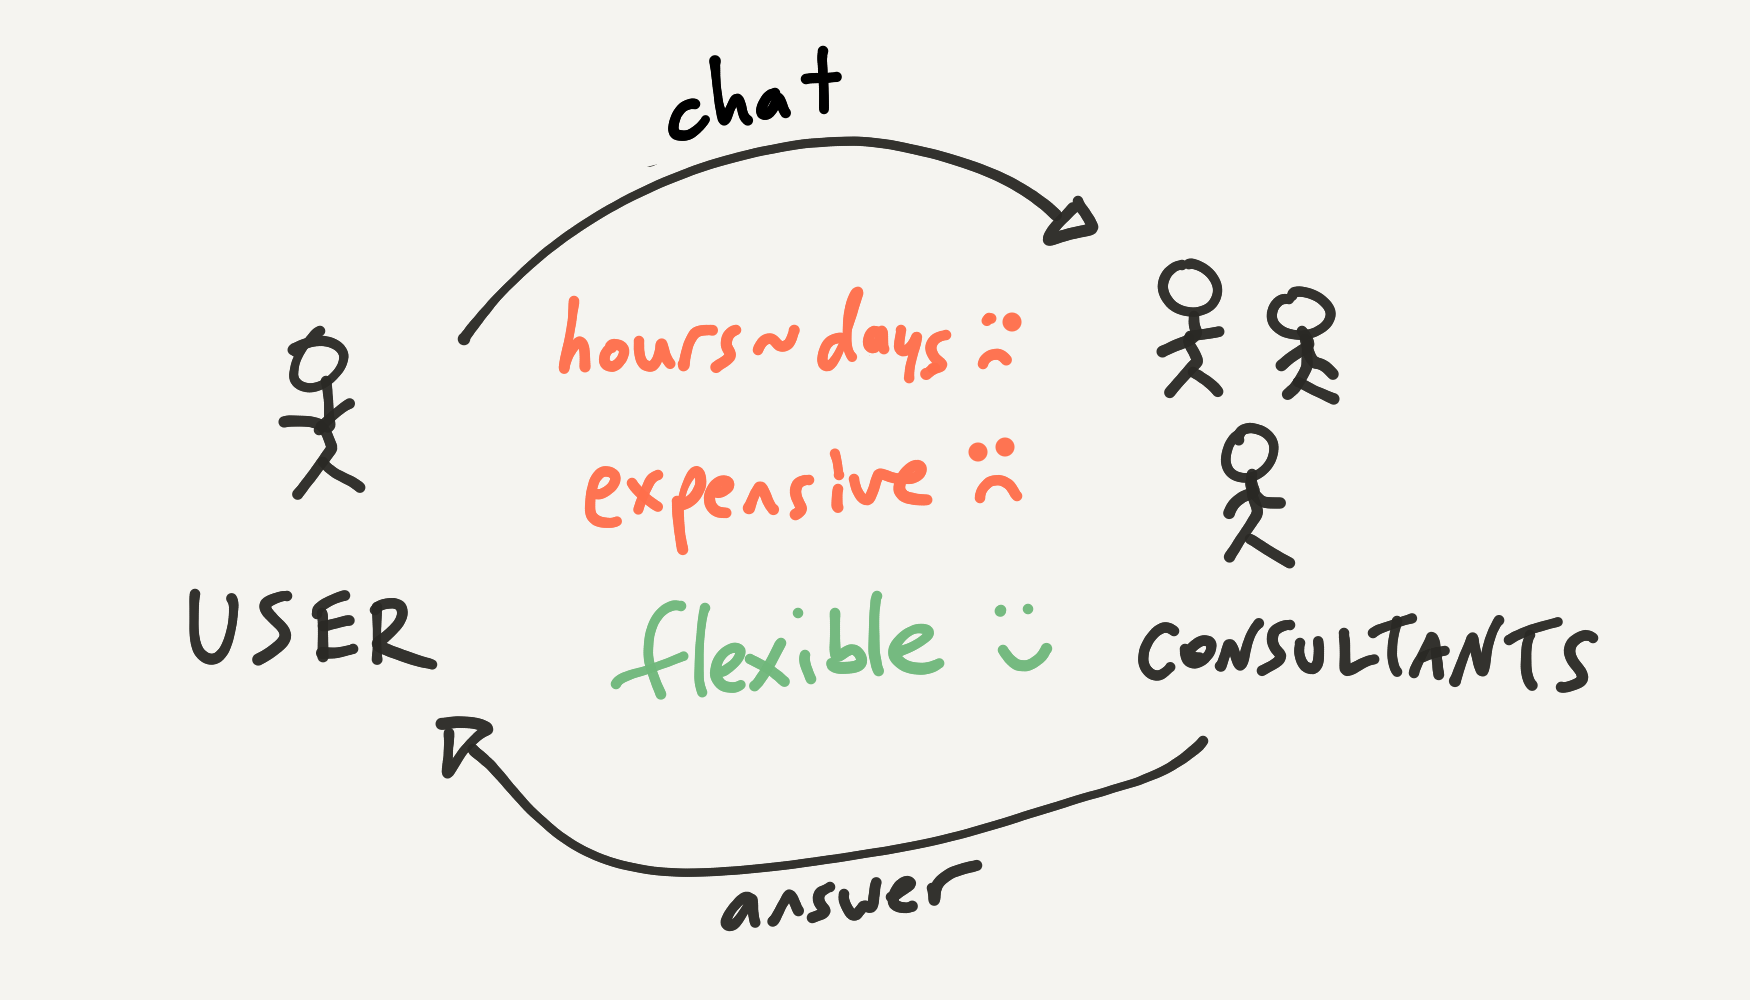 chat
hours~days
expensive
flexible
USER
CONSULTANTS
answer